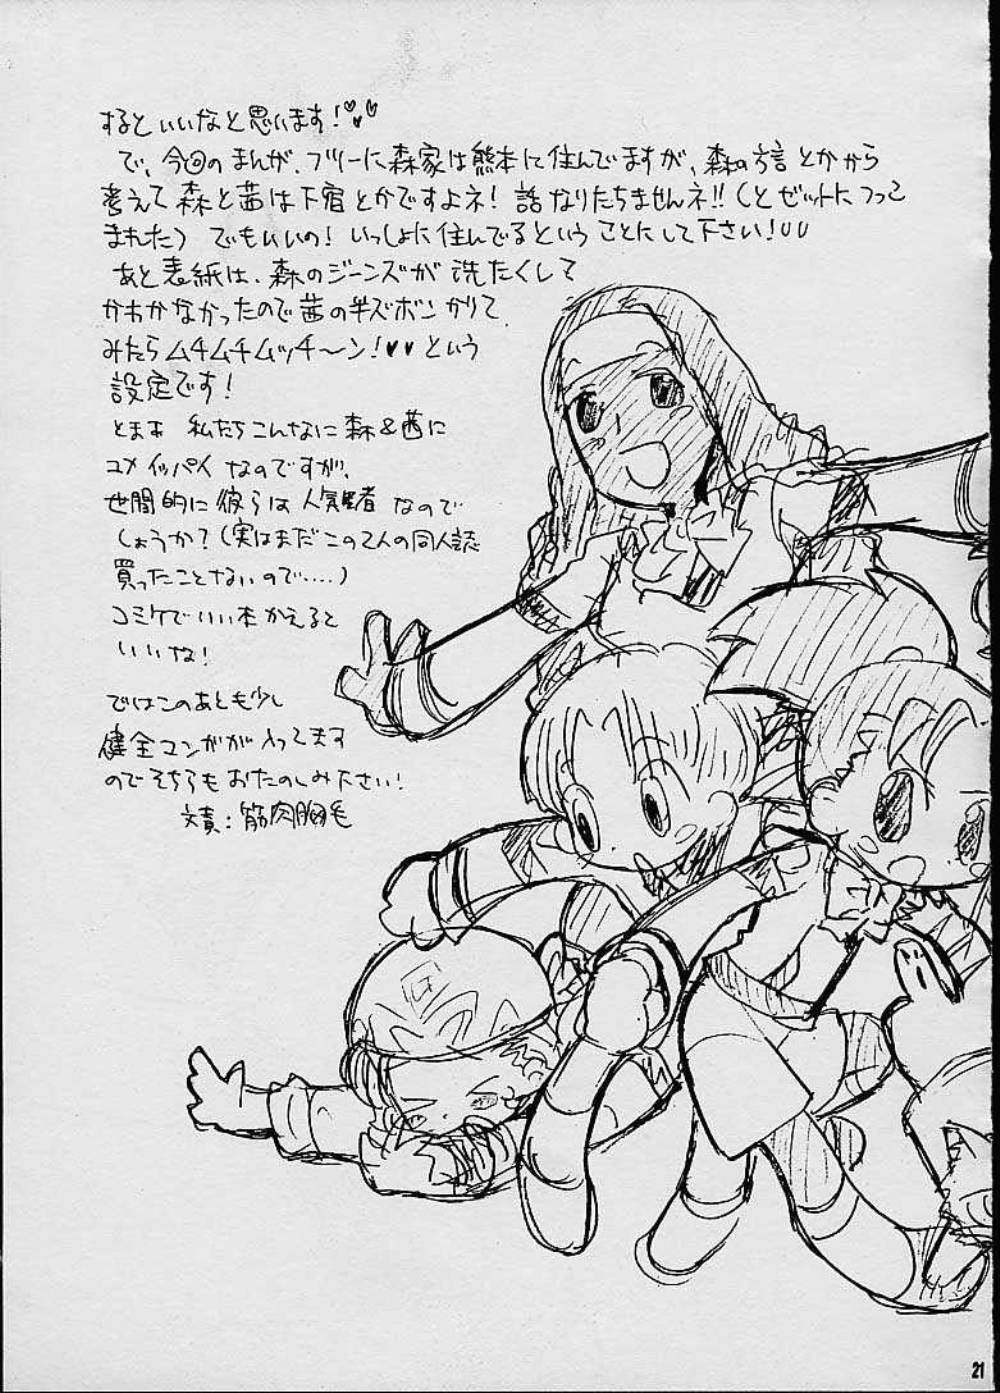 するといいなと思います!♡♥♥
で、今回のまんが、フツーに森家は熊本に住んでますが、森の方言とかから
考えて森と茜は下宿とかですよネ!話なりたちませんネ!!(とゼットにつっこ
まれた)でもいいの!いっしょに住んでるということにして下さい!
あと表紙は、森のジーンズが洗たくして
かわかなかったので茜の半ズボンかりて
みたらムチムチムッチ〜ン!♥♥という
設定です!
とまぁ 私たちこんなに森&茜に
ユメイッパイなのですが、
世間的に彼らは人気者なので
しょうか?(実はまだこの2人の同人誌
買ったことないので……)
コミケでいい本かえると
いいな!
ではこのあとも少し
健全マンガが入ってます
のでそちらもおたのしみ下さい!
文責:筋肉胸毛
は
21